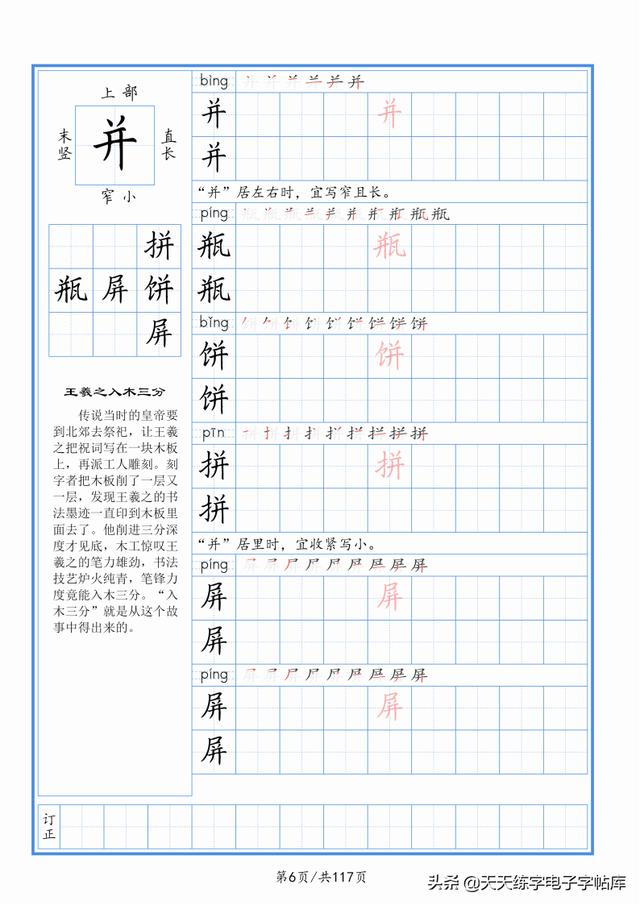 上部
末竖
并
直长
窄小
拼
瓶 屏 饼
屏
王羲之入木三分
传说当时的皇帝要
到北郊去祭祀，让王羲
之把祝词写在一块木板
上，再派工人雕刻。刻
字者把木板削了一层又
一层，发现王羲之的书
法墨迹一直印到木板里
面去了。他削进三分深
度才见底，木工惊叹王
羲之的笔力雄劲，书法
技艺炉火纯青，笔锋力
度竟能入木三分。“入
木三分”就是从这个故
事中得出来的。
bìng
并 并
并
“并”居左右时，宜写窄且长。
píng
瓶 瓶
瓶
bǐng
饼 饼
饼
pīn
拼 拼
拼
“并”居里时，宜收紧写小。
píng
屏 屏
屏
píng
屏 屏
屏
订正
第6页/共117页
头条 @天天练字电子字帖库